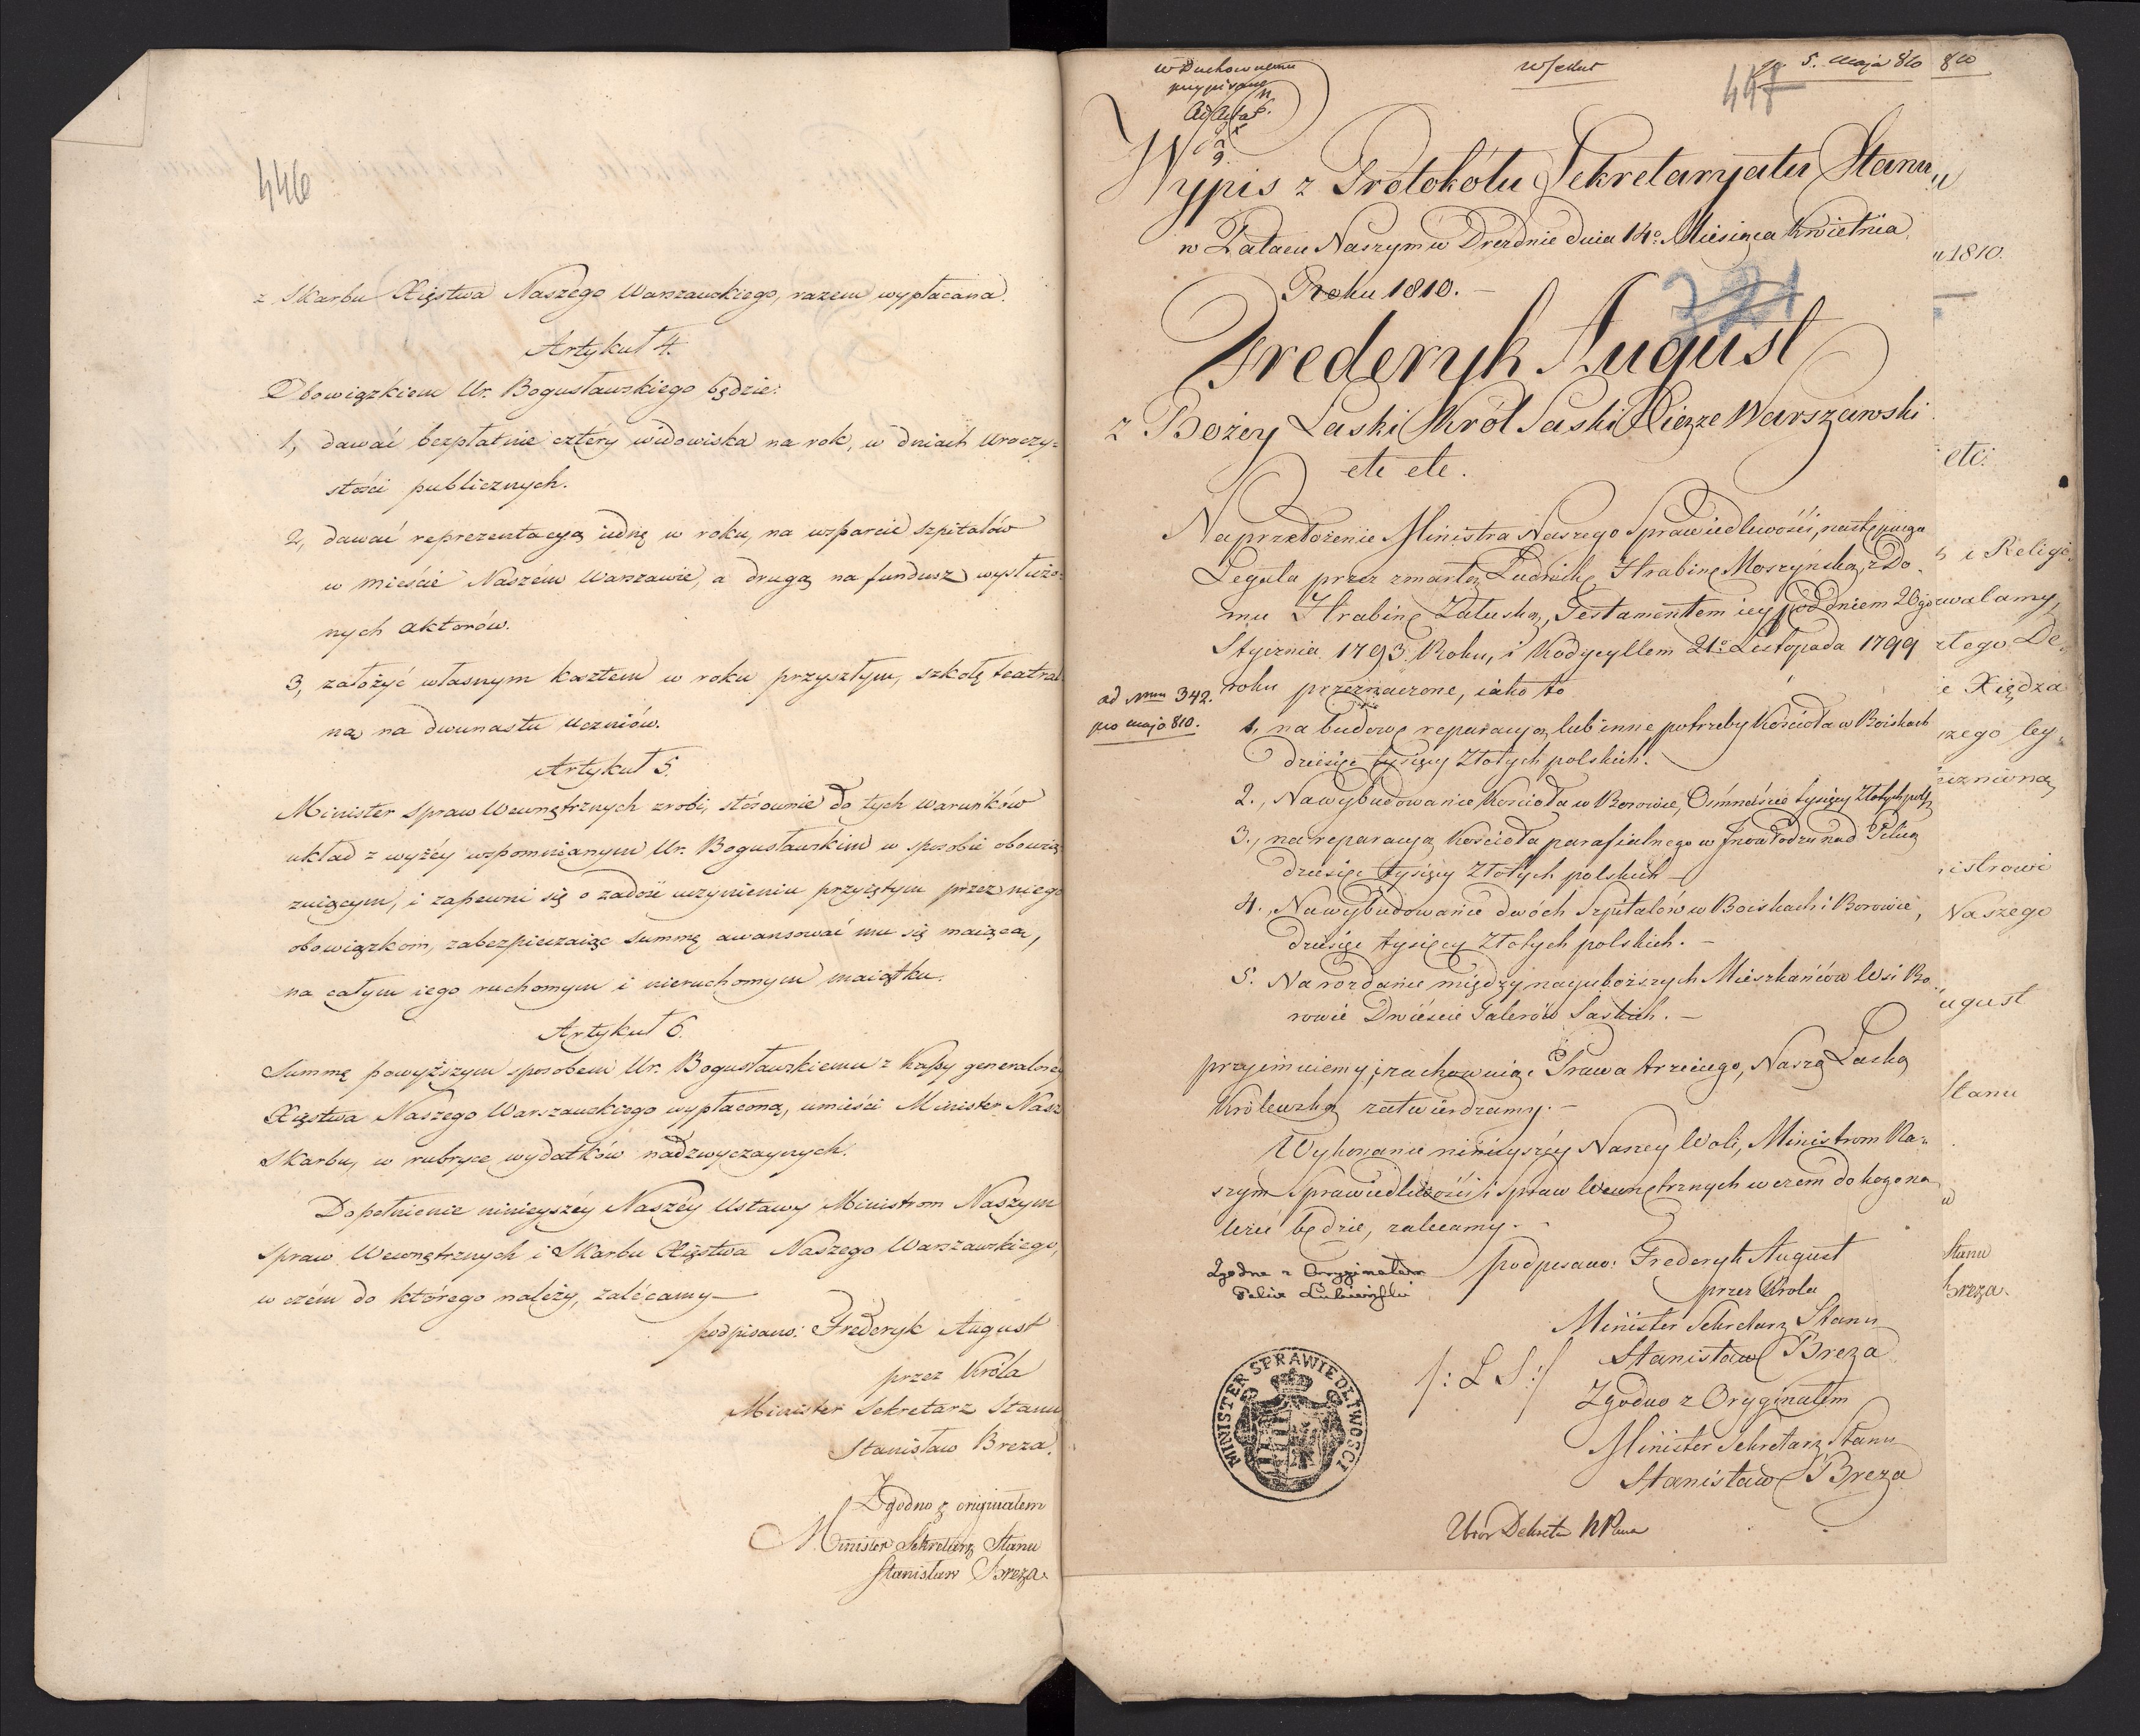 446
z Skarbu Xięstwa Naszego Warszawskiego, razem wypłacana.
Artykuł 4.
Obowiązkiem Ur. Bogusławskiego będzie:
1, dawać bezpłatnie cztéry widowiska na rok, w dniach Uroczy=
stości publicznych.
2, dawać reprezentacyą iednę w roku, na wsparcie szpitalów
w mieście Naszém Warszawie, a drugą na fundusz wysłużo=
nych aktorów.
3, założyć własnym kosztem w roku przyszłym, szkołę teatral
ną na dwunastu Uczniów.
Artykuł 5.
Minister Spraw Wewnętrznych zrobi, stósownie do tych warunków
układ z wyżéy wspomnianym Ur. Bogusławskim w sposobie obowią
zuiącym, i zapewni się o zadość uczynieniu przyiętym przez niego
obowiązkom, zabezpieczaiąc summę awansować mu się maiącą,
na całym iego ruchomym i nieruchomym maiątku.
Artykuł 6.
Summę powyższym sposobem Ur. Bogusławskiemu z Kassy generalnéy
Xięstwa Naszego Warszawskiego wypłaconą, umieści Minister Nasz
Skarbu, w rubryce wydatków nadzwyczaynych.
Dopełnienie ninieyszéy Naszéy Ustawy Ministrom Naszym
Spraw Wewnętrznych i Skarbu Xięstwa Naszego Warszawskiego,
w czém do którego należy, zalécamy
podpisano: Fryderyk August
przez Króla
Minister Sekretarz Stanu
Stanisław Breza.
Zgodno z originałem
Minister Sekretarz Stanu
Stanisław Breza
w Duchownemu
przypisano
Ad Acta
5. Maja 810
810
447
Wypis z Protokółu Sekretaryatu Stanu
w Pałacu Naszym w Dreznie dnia 14º Miesiąca Kwietnia
Roku 1810.
u 1810.
321
Frederyk August
z Bożey Łaski Król Saski Xiąże Warszawski
etc etc.
etc:
Na przełożenie Ministra Naszego Sprawiedliwości, następuiące
Legata przez zmarłą Ludwikę Hrabinę Moszyńską, z Do=
i Religi
mu Hrabinę Załuską, Testamentem iey pod dniem 20go
zwalamy,
Stycznia 1793. Roku, i Kodycyllem 21º Listopada 1799
złego De
roku przeznaczone, iako to
Xiędza
ad Num 342.
pro majo 810.
1, na budowę reparacyą lub inne potrzeby Kościoła w Boiskach
dziesięć tysięcy Złotych polskich.
2., Na wybudowanie Kościoła w Borowie, Ośmnaście tysięcy Złotych pols
3., na reparacyą Kościoła parafialnego w Inowłodzu nad Pilicą
dziesięć tysięcy Złotych polskich
istrowi
4., Na wybudowanie dwóch Szpitalów w Boiskach i Borowie,
Naszego
dziesięć tysięcy Złotych polskich.
5. Na rozdanie między nayuboższych Mieszkańców Wsi Bo
ugust
rowie Dwieście Talerów Saskich.
przyimuiemy, i zachowuiąc Prawa trzeciego, Naszą Łaską
Stanu
Królewską zatwierdzamy.
Wykonanie ninieyszéy Naszey Woli, Ministrom Na=
szym Sprawiedliwości i Spraw Wewnętrznych w czem do kogo na
leżeć będzie, zalecamy.
podpisano: Frederyk August
Stanu
Zgodno z Oryginałem
Felix Łubieński
przez Króla
Breza.
Minister Sekretarz Stanu
/: L S :/
Stanisław Breza
Zgodno z Oryginałem
Minister Sekretarz Stanu
Stanisław Breza
MINISTER SPRAWIEDLIWOSCI
Zbiór Dekretów